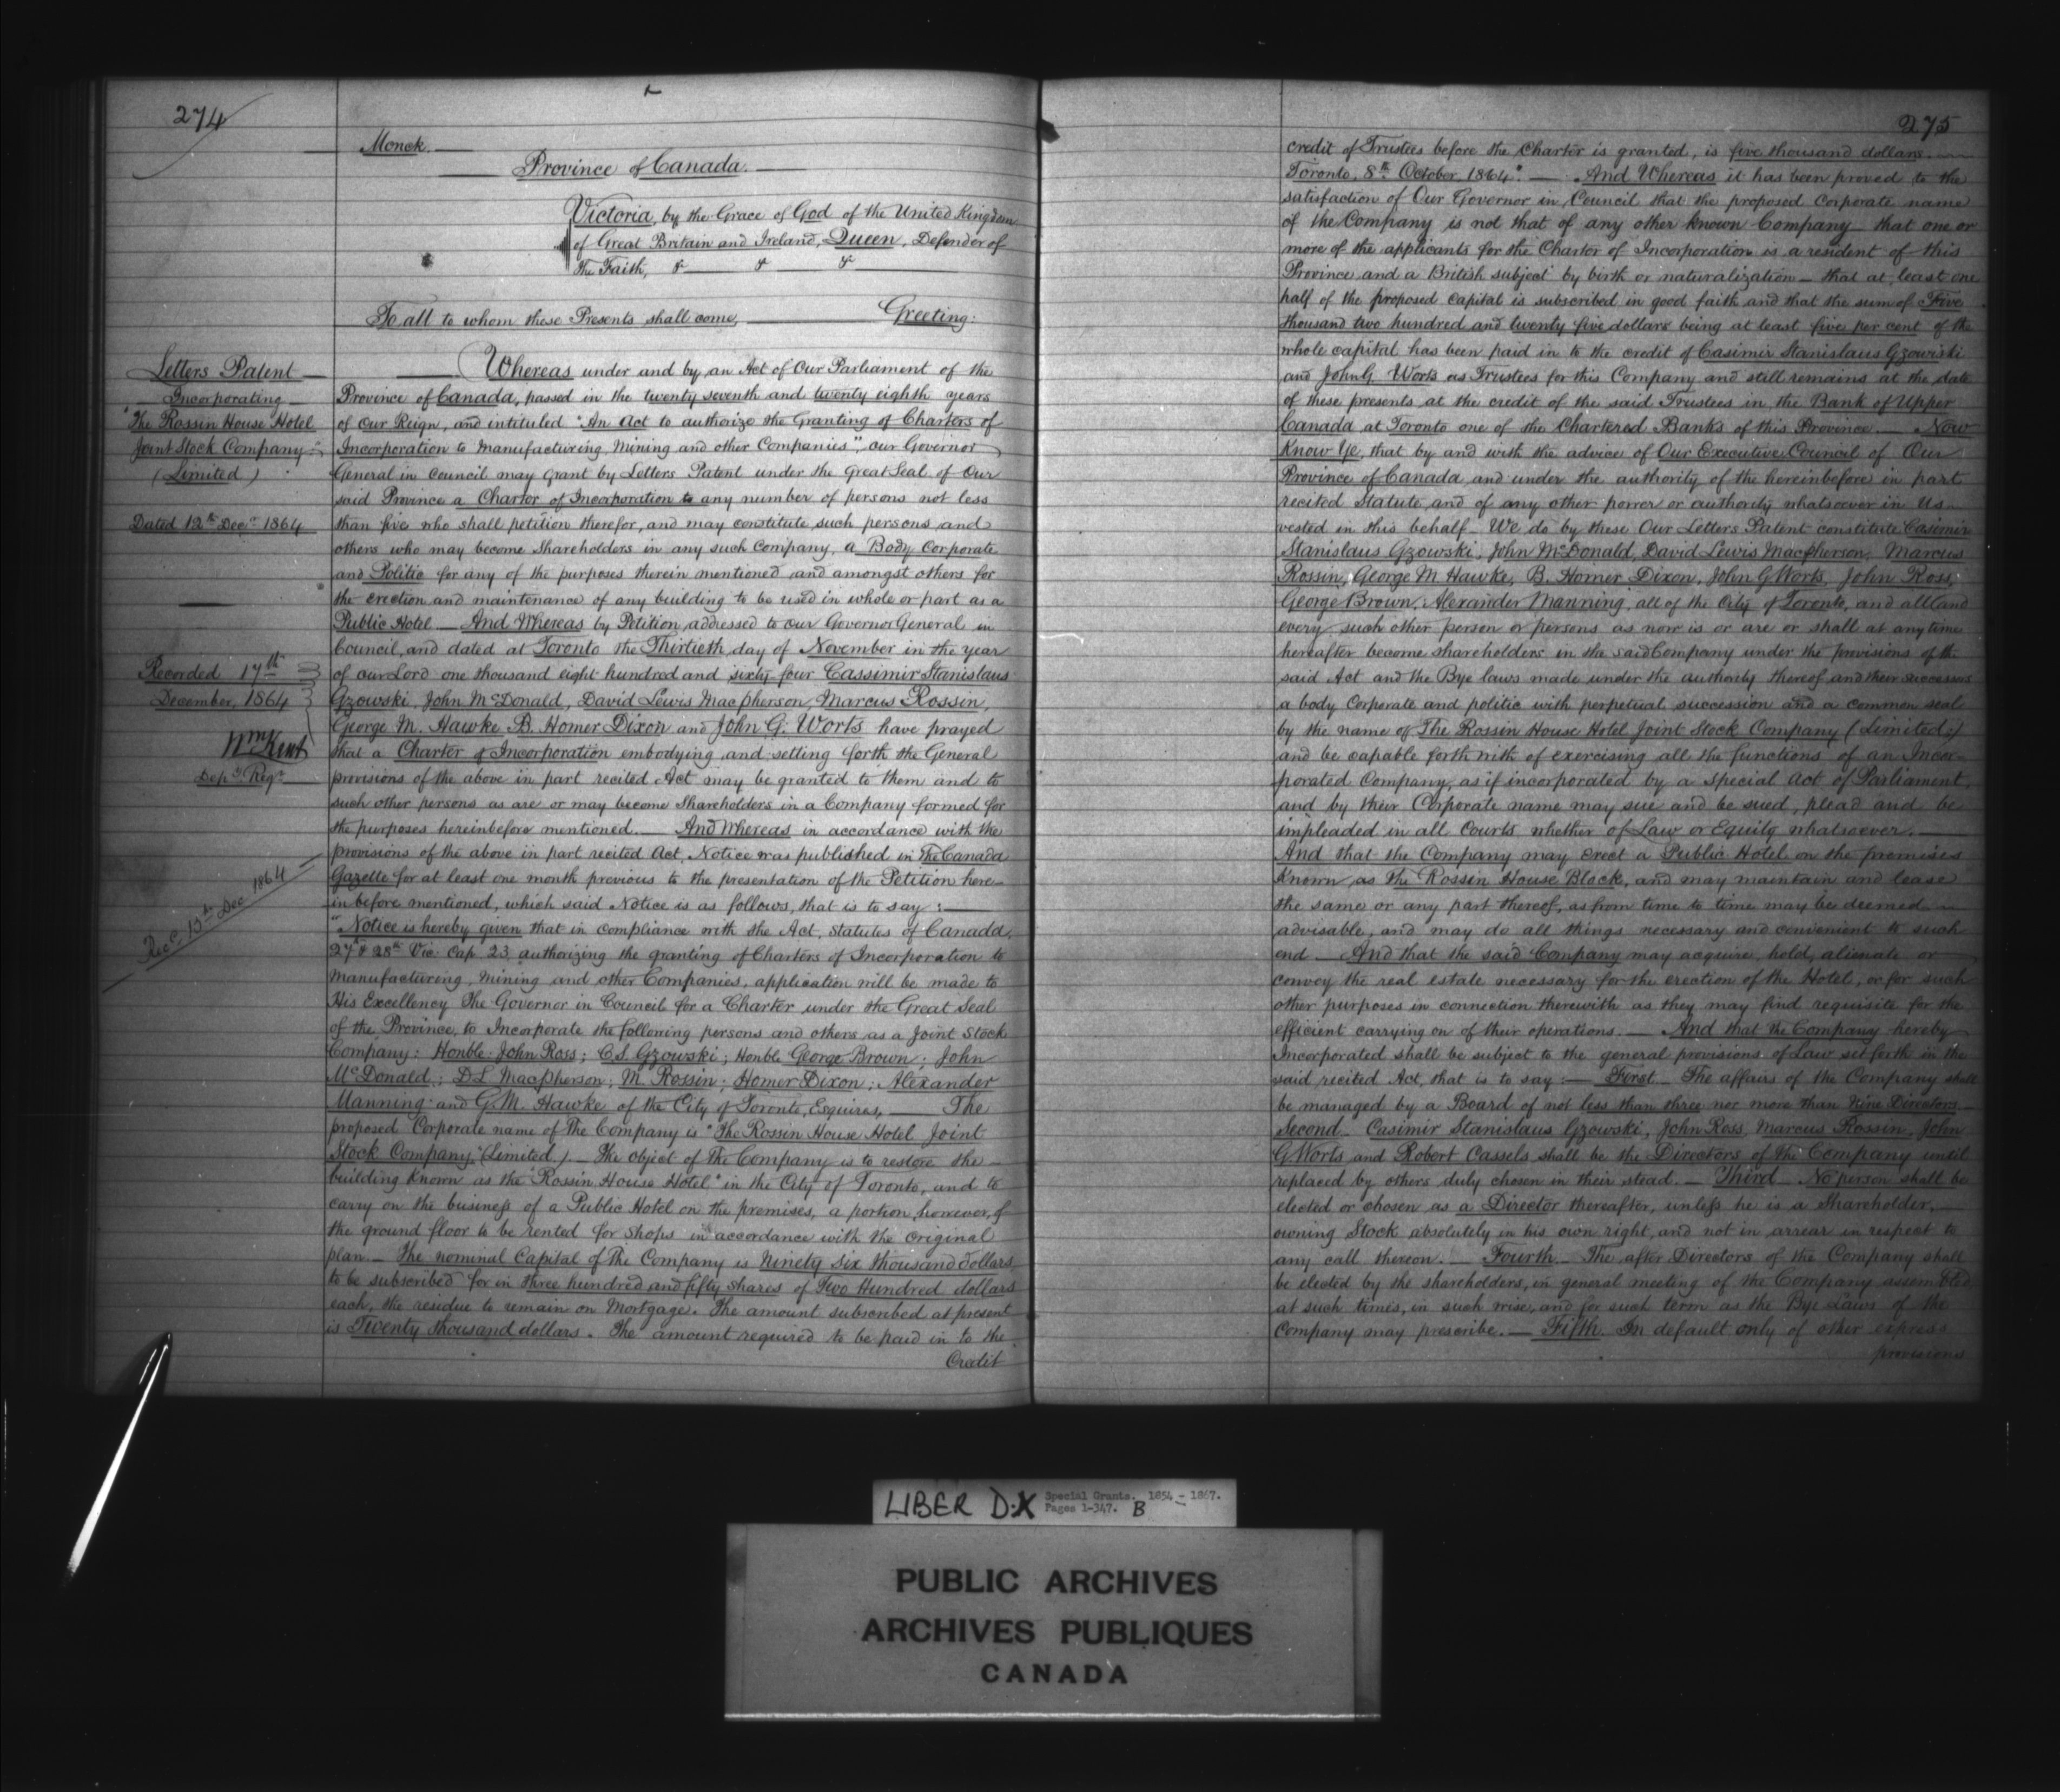 274
Monck.
Province of Canada.
Victoria, by the Grace of God of the United Kingdom
of Great Britain and Ireland, Queen, Defender of
The Faith, & & &
To all to whom these Presents shall come, Greeting:
Letters Patent
Incorporating
"The Rossin House Hotel
Joint Stock Company
(Limited)
Dated 12th Decr 1864
Recorded 17th
December, 1864
Wm Kent
Depy Regr
Recd 13th Dec 1864
Whereas under and by an Act of Our Parliament of the
Province of Canada, passed in the twenty seventh and twenty eighth years
of Our Reign, and intituled "An Act to authorize the Granting of Charters of
Incorporation to Manufacturing Mining and other Companies", our Governor
General in Council may grant by Letters Patent under the Great Seal of Our
said Province a Charter of Incorporation to any number of persons not less
than five who shall petition therefor, and may constitute such persons and
others who may become Shareholders in any such Company, a Body Corporate
and Politic for any of the purposes therein mentioned and amongst others for
the erection and maintenance of any building to be used in whole or part as a
Public Hotel And Whereas by Petition addressed to our Governor General in
Council, and dated at Toronto the Thirtieth day of November in the year
of our Lord one thousand eight hundred and sixty four Cassimir Stanislaus
Gzowski, John McDonald, David Lewis Macpherson, Marcus Rossin,
George M. Hawke, B. Homer Dixon and John G. Worts have prayed
that a Charter of Incorporation embodying and setting forth the General
provisions of the above in part recited Act may be granted to them and to
such other persons as are or may become Shareholders in a Company formed for
the purposes hereinbefore mentioned. And Whereas in accordance with the
provisions of the above in part recited Act, Notice was published in The Canada
Gazette for at least one month previous to the presentation of the Petition here-
inbefore mentioned, which said Notice is as follows, that is to say:
"Notice is hereby given that in compliance with the Act, Statutes of Canada,
27th & 28th Vic. Cap. 23, authorizing the granting of Charters of Incorporation to
manufacturing, mining and other Companies, application will be made to
His Excellency The Governor in Council for a Charter under the Great Seal
of the Province, to Incorporate the following persons and others as a Joint Stock
Company: Honble John Ross; C.S. Gzowski; Honble George Brown; John
McDonald; D L Macpherson; M. Rossin; Homer Dixon; Alexander
Manning and G.M. Hawke of the City of Toronto, Esquires, The
proposed Corporate name of The Company is "The Rossin House Hotel Joint
Stock Company" (Limited) The object of The Company is to restore the
building Known as the "Rossin House Hotel" in the City of Toronto, and to
carry on the business of a Public Hotel on the premises, a portion, however, of
the ground floor to be rented for Shops in accordance with the original
plan. The nominal Capital of The Company is Ninety Six thousand dollars,
to be subscribed for in three hundred and fifty shares of Two Hundred dollars
each, the residue to remain on Mortgage. The amount subscribed at present
is Twenty thousand dollars. The amount required to be paid in to the
Credit
275
credit of Trustees before the Charter is granted, is five thousand dollars.
Toronto, 8th October, 1864". And Whereas it has been proved to the
satisfaction of Our Governor in Council that the proposed Corporate name
of the Company is not that of any other known Company that one or
more of the applicants for the Charter of Incorporation is a resident of this
Province and a British subject by birth or naturalization that at least one
half of the proposed capital is subscribed in good faith and that the sum of Five
thousand two hundred and twenty five dollars being at least five per cent of the
whole capital has been paid in to the credit of Casimir Stanislaus Gzowski
and John G. Worts as Trustees for this Company and still remains at the date
of these presents at the credit of the said Trustees in the Bank of Upper
Canada at Toronto one of the Chartered Banks of this Province. Now
Know Ye, that by and with the advice of Our Executive Council of Our
Province of Canada and under the authority of the hereinbefore in part
recited Statute, and of any other power or authority whatsoever in Us
vested in this behalf We do by these Our Letters Patent constitute Casimir
Stanislaus Gzowski, John McDonald, David Lewis Macpherson, Marcus
Rossin, George M Hawke, B. Homer Dixon, John G Worts, John Ross,
George Brown, Alexander Manning, all of the City of Toronto, and all and
every such other person or persons as now is or are or shall at any time
hereafter become shareholders in the said Company under the provisions of the
said Act and the Bye laws made under the authority thereof and their successors
a body Corporate and politic with perpetual succession and a common seal
by the name of The Rossin House Hotel Joint Stock Company (Limited)
and be capable forthwith of exercising all the functions of an Incor-
porated Company, as if incorporated by a special Act of Parliament,
and by their Corporate name may sue and be sued, plead and be
impleaded in all Courts whether of Law or Equity whatsoever.
And that the Company may erect a Public Hotel on the premises
Known as the Rossin House Block, and may maintain and lease
the same or any part thereof, as from time to time may be deemed
advisable, and may do all things necessary and convenient to such
end And that the said Company may acquire, hold, alienate or
convey the real estate necessary for the erection of the Hotel, or for such
other purposes in connection therewith as they may find requisite for the
efficient carrying on of their operations. And that the Company hereby
Incorporated shall be subject to the general provisions of Law set forth in the
said recited Act, that is to say: First The affairs of the Company shall
be managed by a Board of not less than three nor more than Nine Directors
Second Casimir Stanislaus Gzowski, John Ross, Marcus Rossin, John
G. Worts and Robert Cassels shall be the Directors of the Company until
replaced by others duly chosen in their stead. Third No person shall be
elected or chosen as a Director thereafter, unless he is a Shareholder,
owning Stock absolutely in his own right, and not in arrear in respect to
any call thereon. Fourth The after Directors of the Company shall
be elected by the shareholders, in general meeting of the Company assembled
at such times, in such wise, and for such term as the Bye Laws of the
Company may prescribe. Fifth. In default only of other express
provisions
LIBER D.X Special Grants. 1854 - 1867.
Pages 1-347. B
PUBLIC ARCHIVES
ARCHIVES PUBLIQUES
CANADA